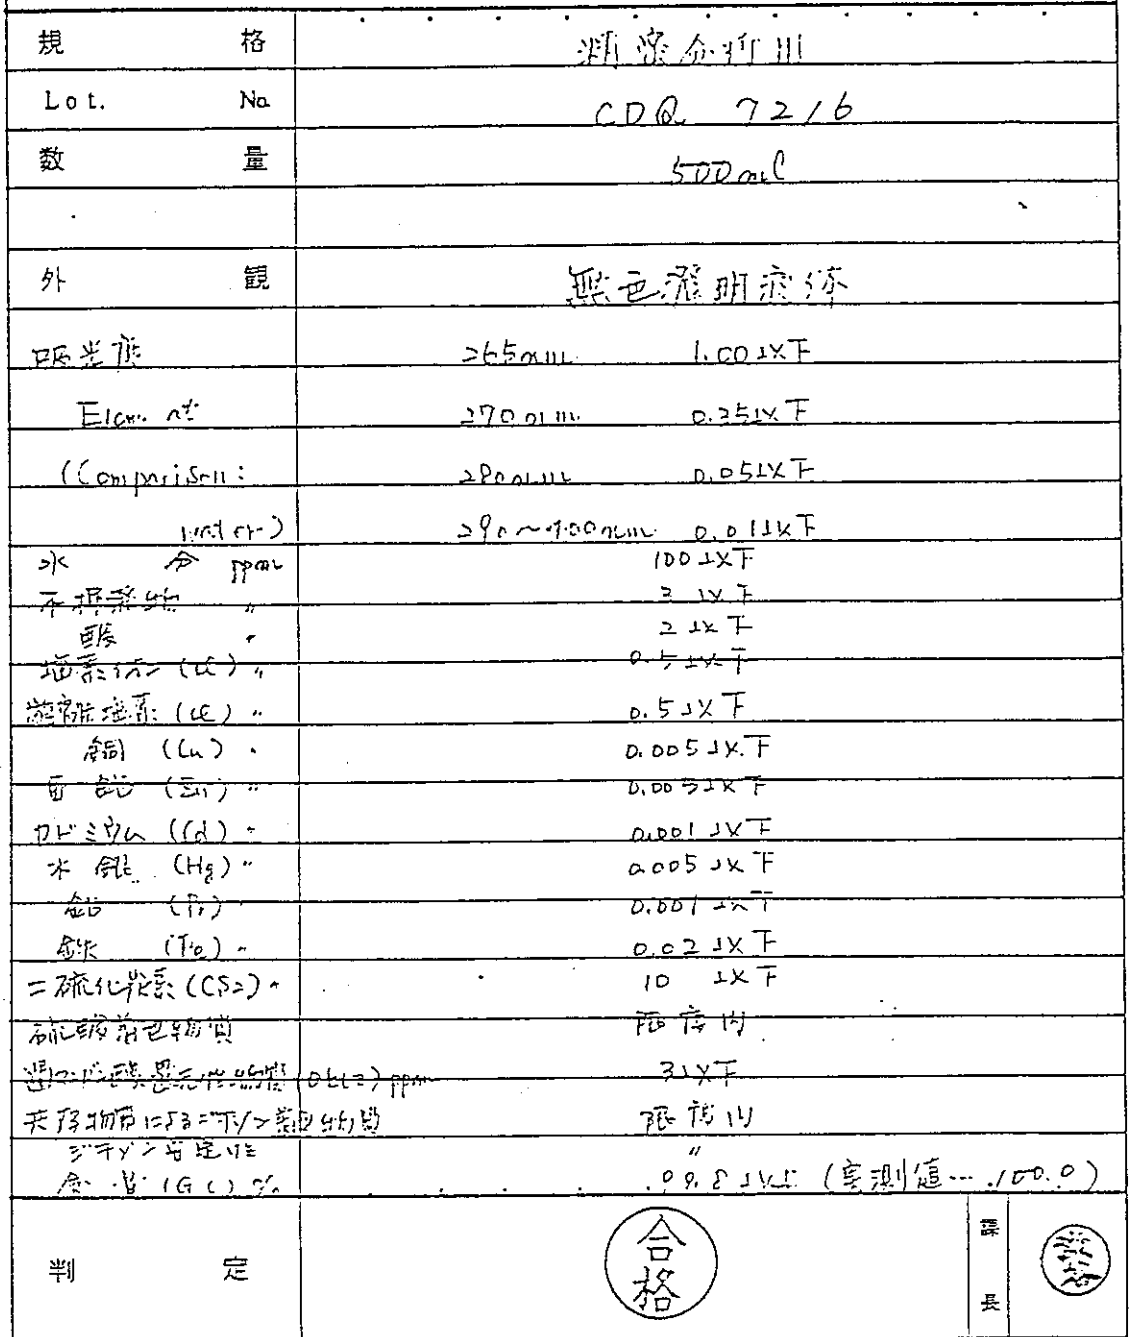 規 格 精密分析用
Lot. No. CDQ 7216
数 量 500ml
外 観 無色澄明液体
吸光度 265nm 1.00以下
270nm 0.25以下
(Comparison: 280nm 0.05以下
water) 290～400nm 0.01以下
水 分 ppm 100以下
不揮発物 〃 3以下
酸 〃 2以下
塩素イオン (Cl) 〃 0.5以下
遊離塩素 (Cl) 〃 0.5以下
銅 (Cu) 〃 0.005以下
亜鉛 (Zn) 〃 0.005以下
カドミウム (Cd) 〃 0.001以下
水銀 (Hg) 〃 0.005以下
鉛 0.001以下
鉄 (Fe) 〃 0.02以下
二硫化炭素 (CS2) 〃 10 以下
硫酸着色物質 限度内
ppm 3以下
限度内
ジチゾン安定性 〃
(GC) % 99.8 (実測値….100.0)
判 定 合格 課長